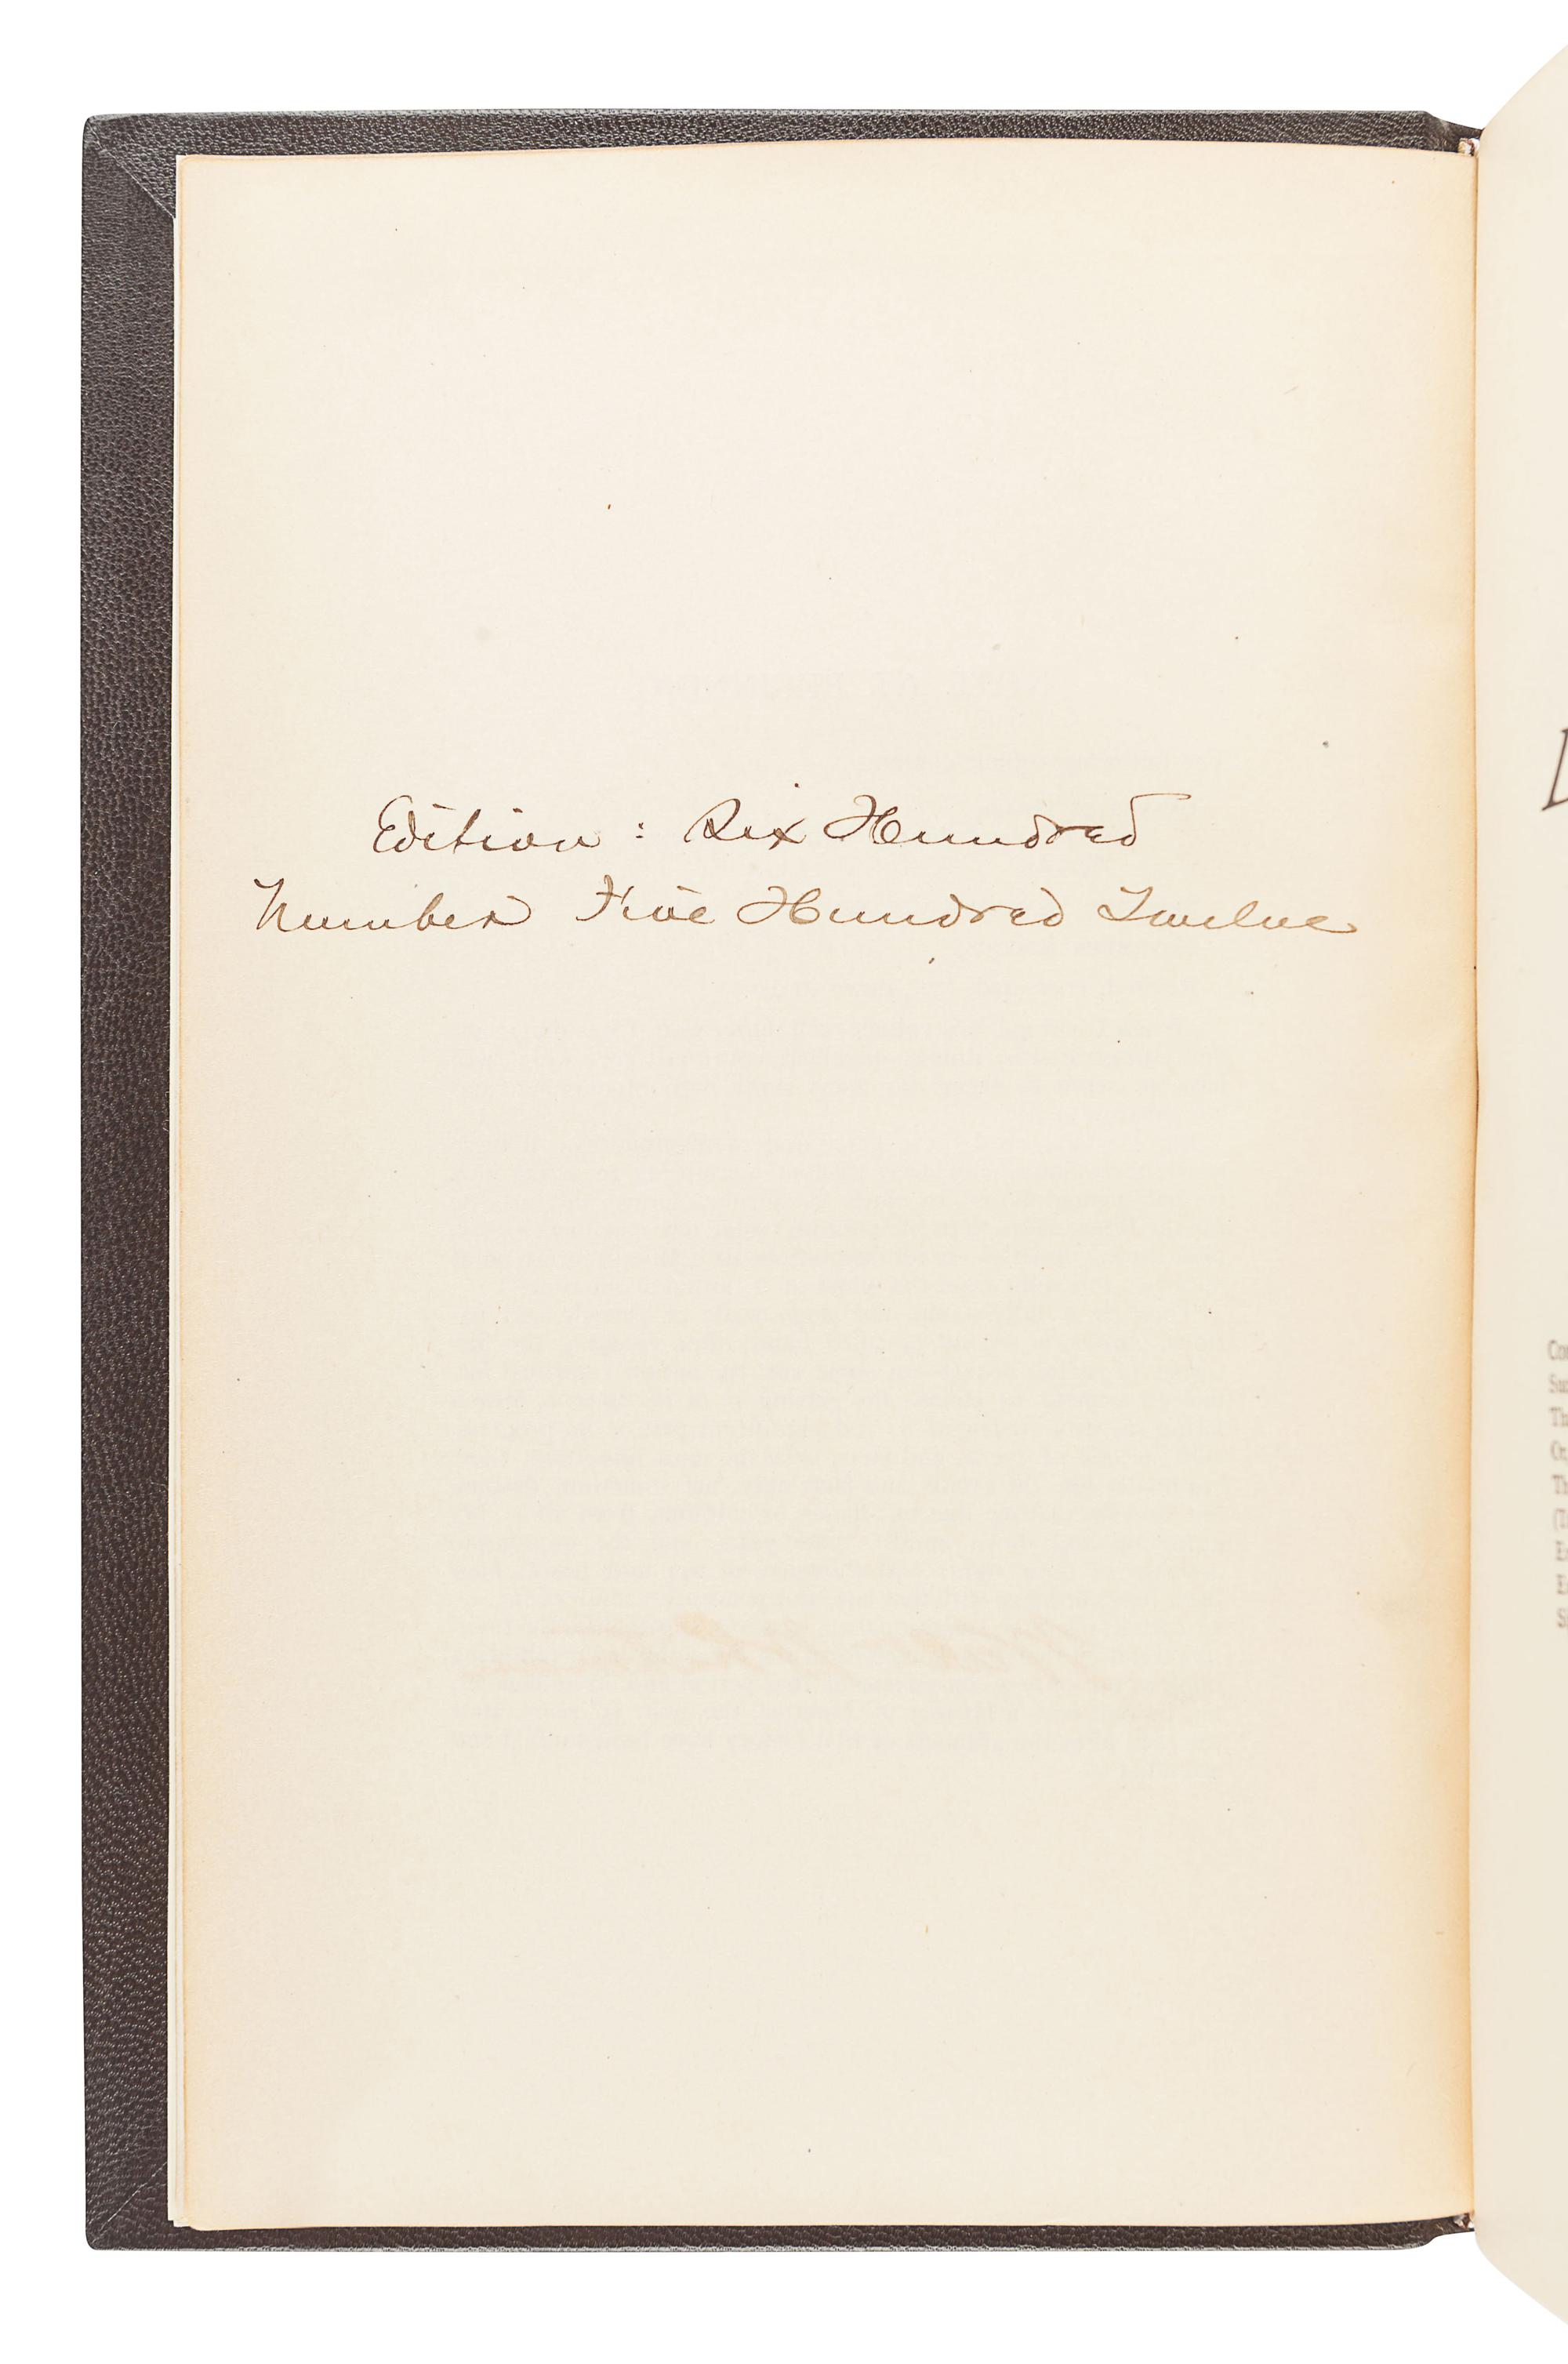 Edition : Six Hundred
Number Five Hundred Twelve
L
Co
Su
Th
Or,
Th